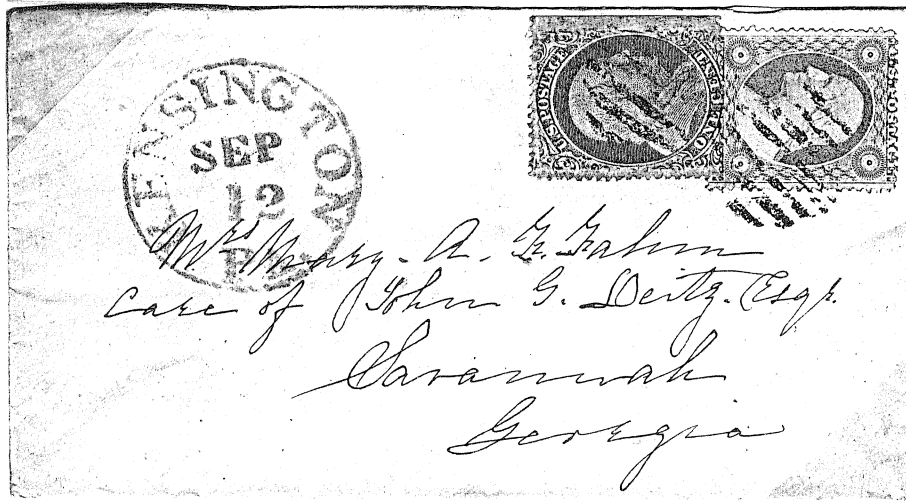 KENSINGTON
SEP
12
Pa
U.S. POSTAGE
ONE CENT
Mrs Mary. A. F. Fahm
Care of John G. Deitz. Esqr.
Savannah
Georgia